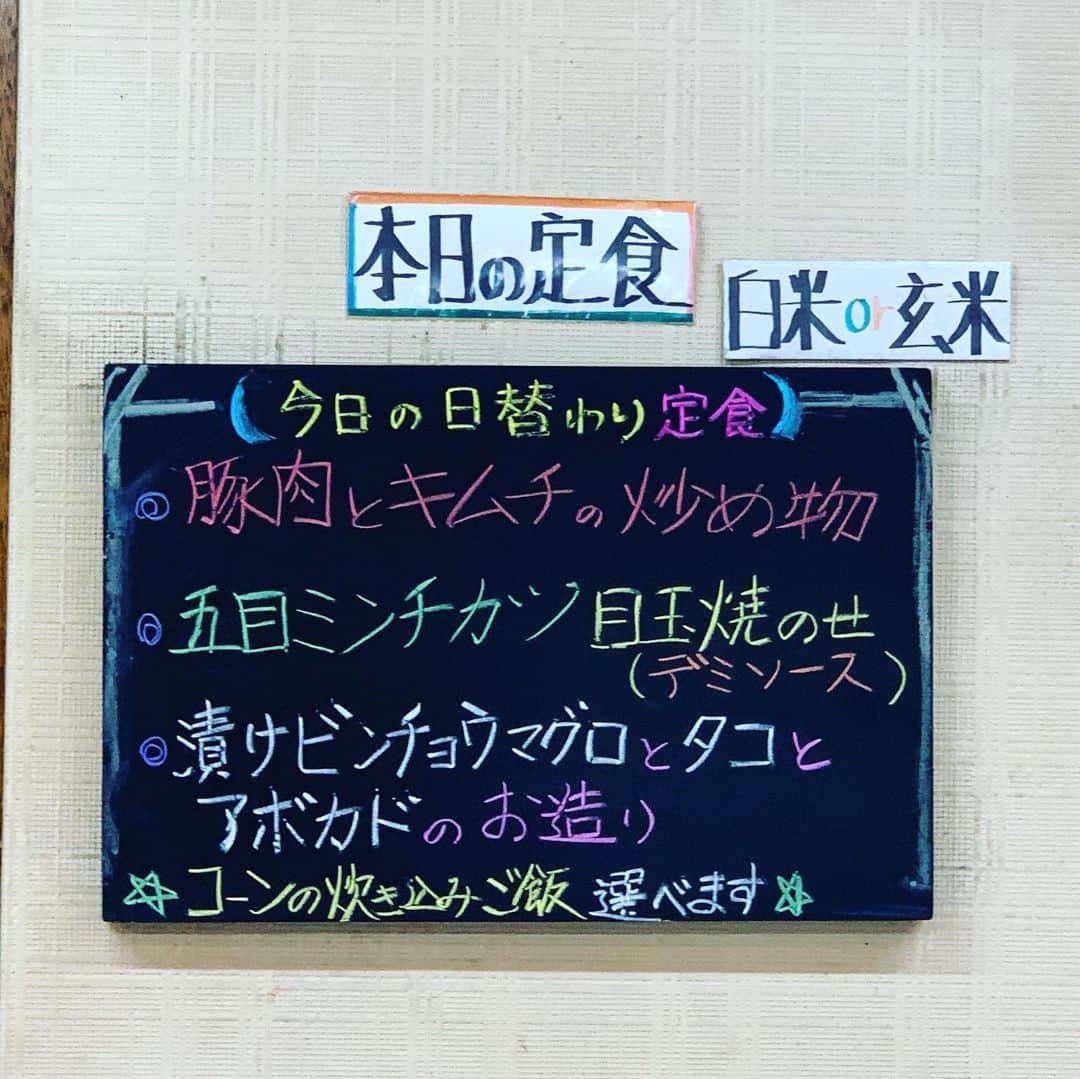 本日の定食
白米or玄米
今日の日替わり定食
豚肉とキムチの炒め物
五目ミンチカツ目玉焼のせ
(デミソース)
漬けビンチョウマグロとタコと
アボカドのお造り
☆コーンの炊き込みご飯 選べます☆